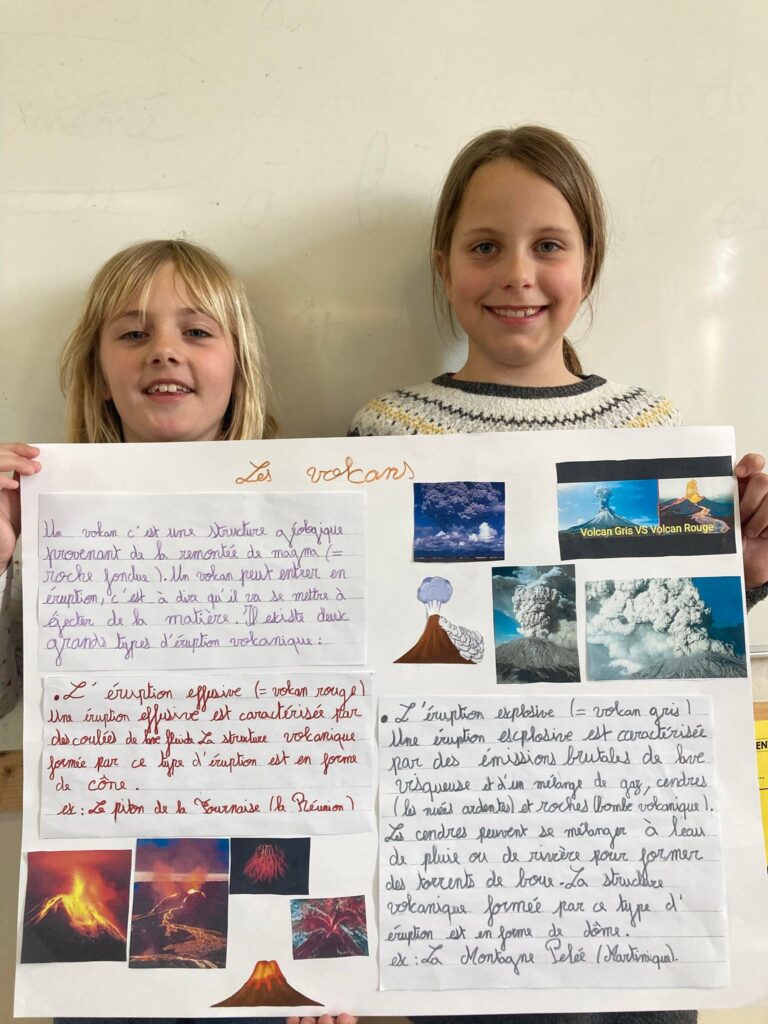 Les volcans
Un volcan c'est une structure géologique
provenant de la remontée de magma (=
roche fondue). Un volcan peut entrer en
éruption, c'est à dire qu'il va se mettre à
éjecter de la matière. Il existe deux
grands types d'éruption volcanique :
Volcan Gris VS Volcan Rouge
• L'éruption effusive (= volcan rouge)
Une éruption effusive est caractérisée par
des coulées de lave fluide. La structure volcanique
formée par ce type d'éruption est en forme
de cône.
ex : Le piton de la Fournaise (la Réunion)
• L'éruption explosive (= volcan gris)
Une éruption escplosive est caractérisée
par des émissions brutales de lave
visqueuse et d'un mélange de gaz, cendres
(les nuées ardentes) et roches (bombe volcanique).
Les cendres peuvent se mélanger à l'eau
de pluie ou de rivière pour former
des torrents de boue. La structure
volcanique formée par ce type d'
éruption est en forme de dôme.
ex : La Montagne Pelée (Martinique).